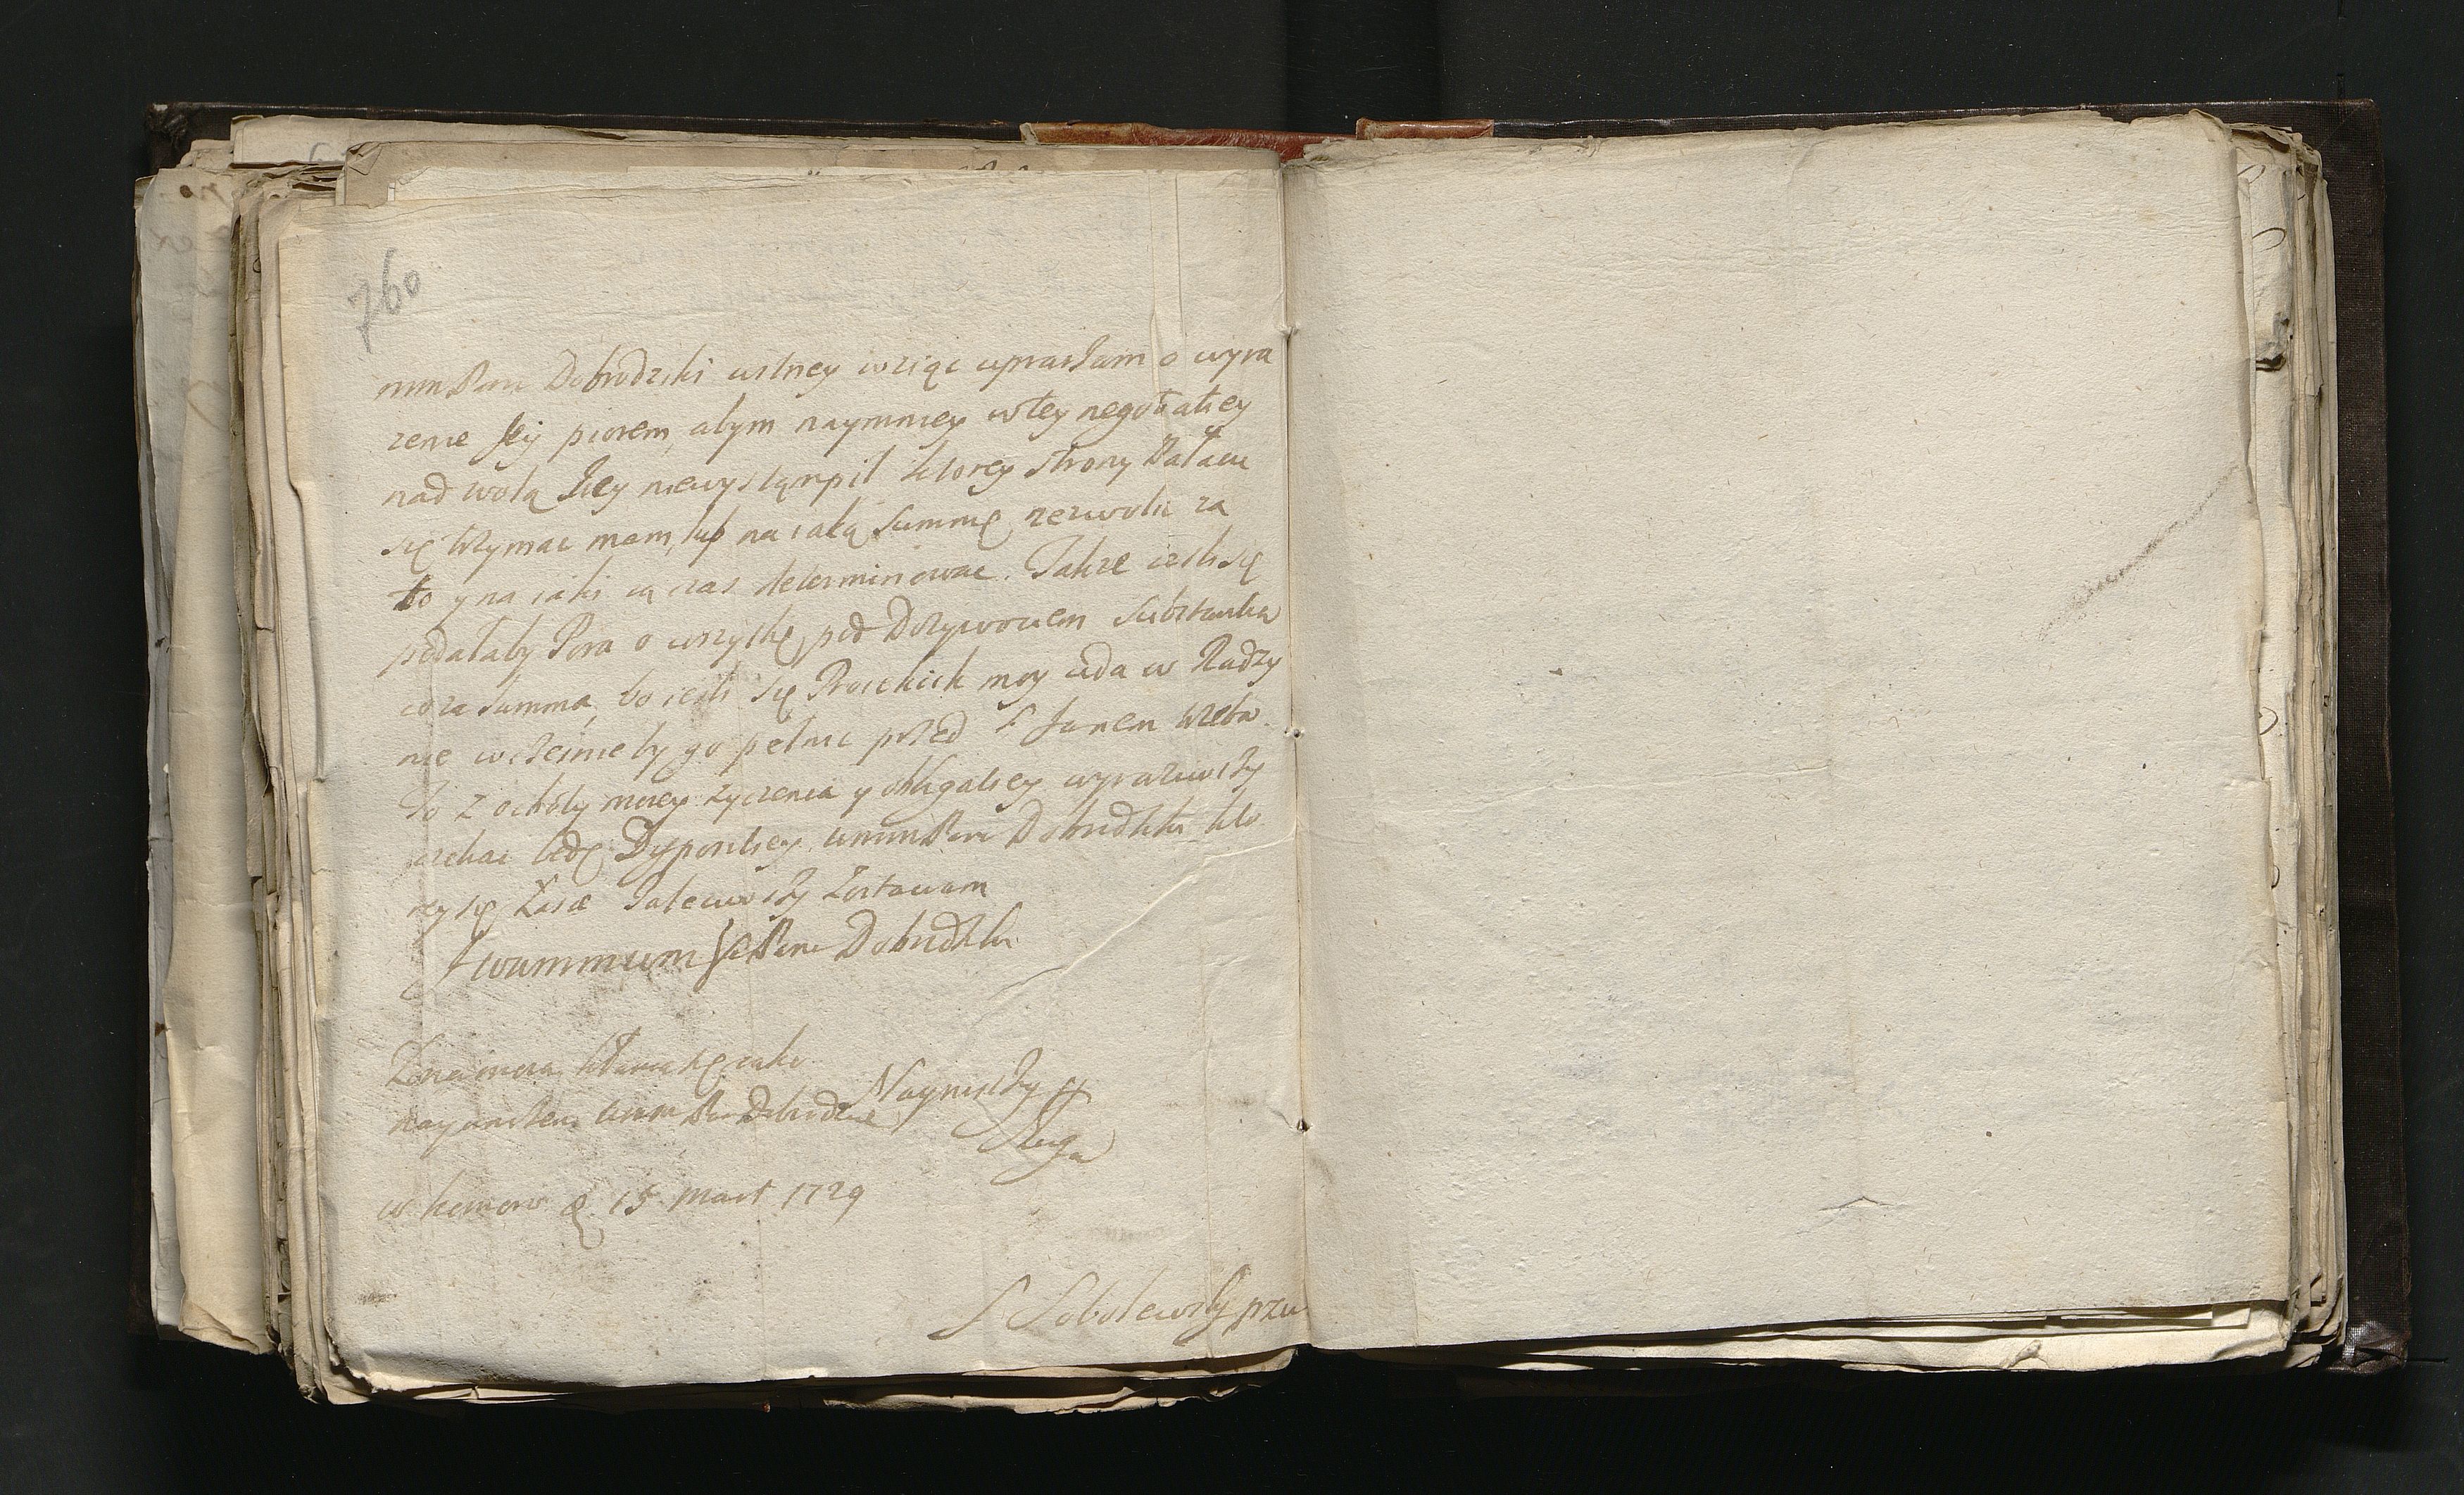 760
mm Pani Dobrodziki ustney wziąc upraszam o wyra
zenie Jey piorem, abym naymniey wtey negotiatiey
nad wolą Jiey niewystąmpił ktorey strony Pałacu
się trzymac mam, lub na iaką Summę zezwolic za
to y na iaki czas determinowac. Takze iesli się
podałaby Pora o wszystkę pod Dozywociem Substantia
co za Summa, bo iesli się Prosekich moy uda w Radzy
nie wczesnieby go pełnic przed S Janem trzeba.
To z ochoty moiey zyczenia y obligatiey wyraziwszy
czekac będę Dyspositiey wmm Pani Dobrodziki kto
rey się Łasce zaleciwszy zostawam
wmmm Pani Dobrodziki
Zona moia kłania się iako
Nayniszszy
wmm Pani Dobrodzice
Sługa
w 15 Mart 1729
S Sobolewsky